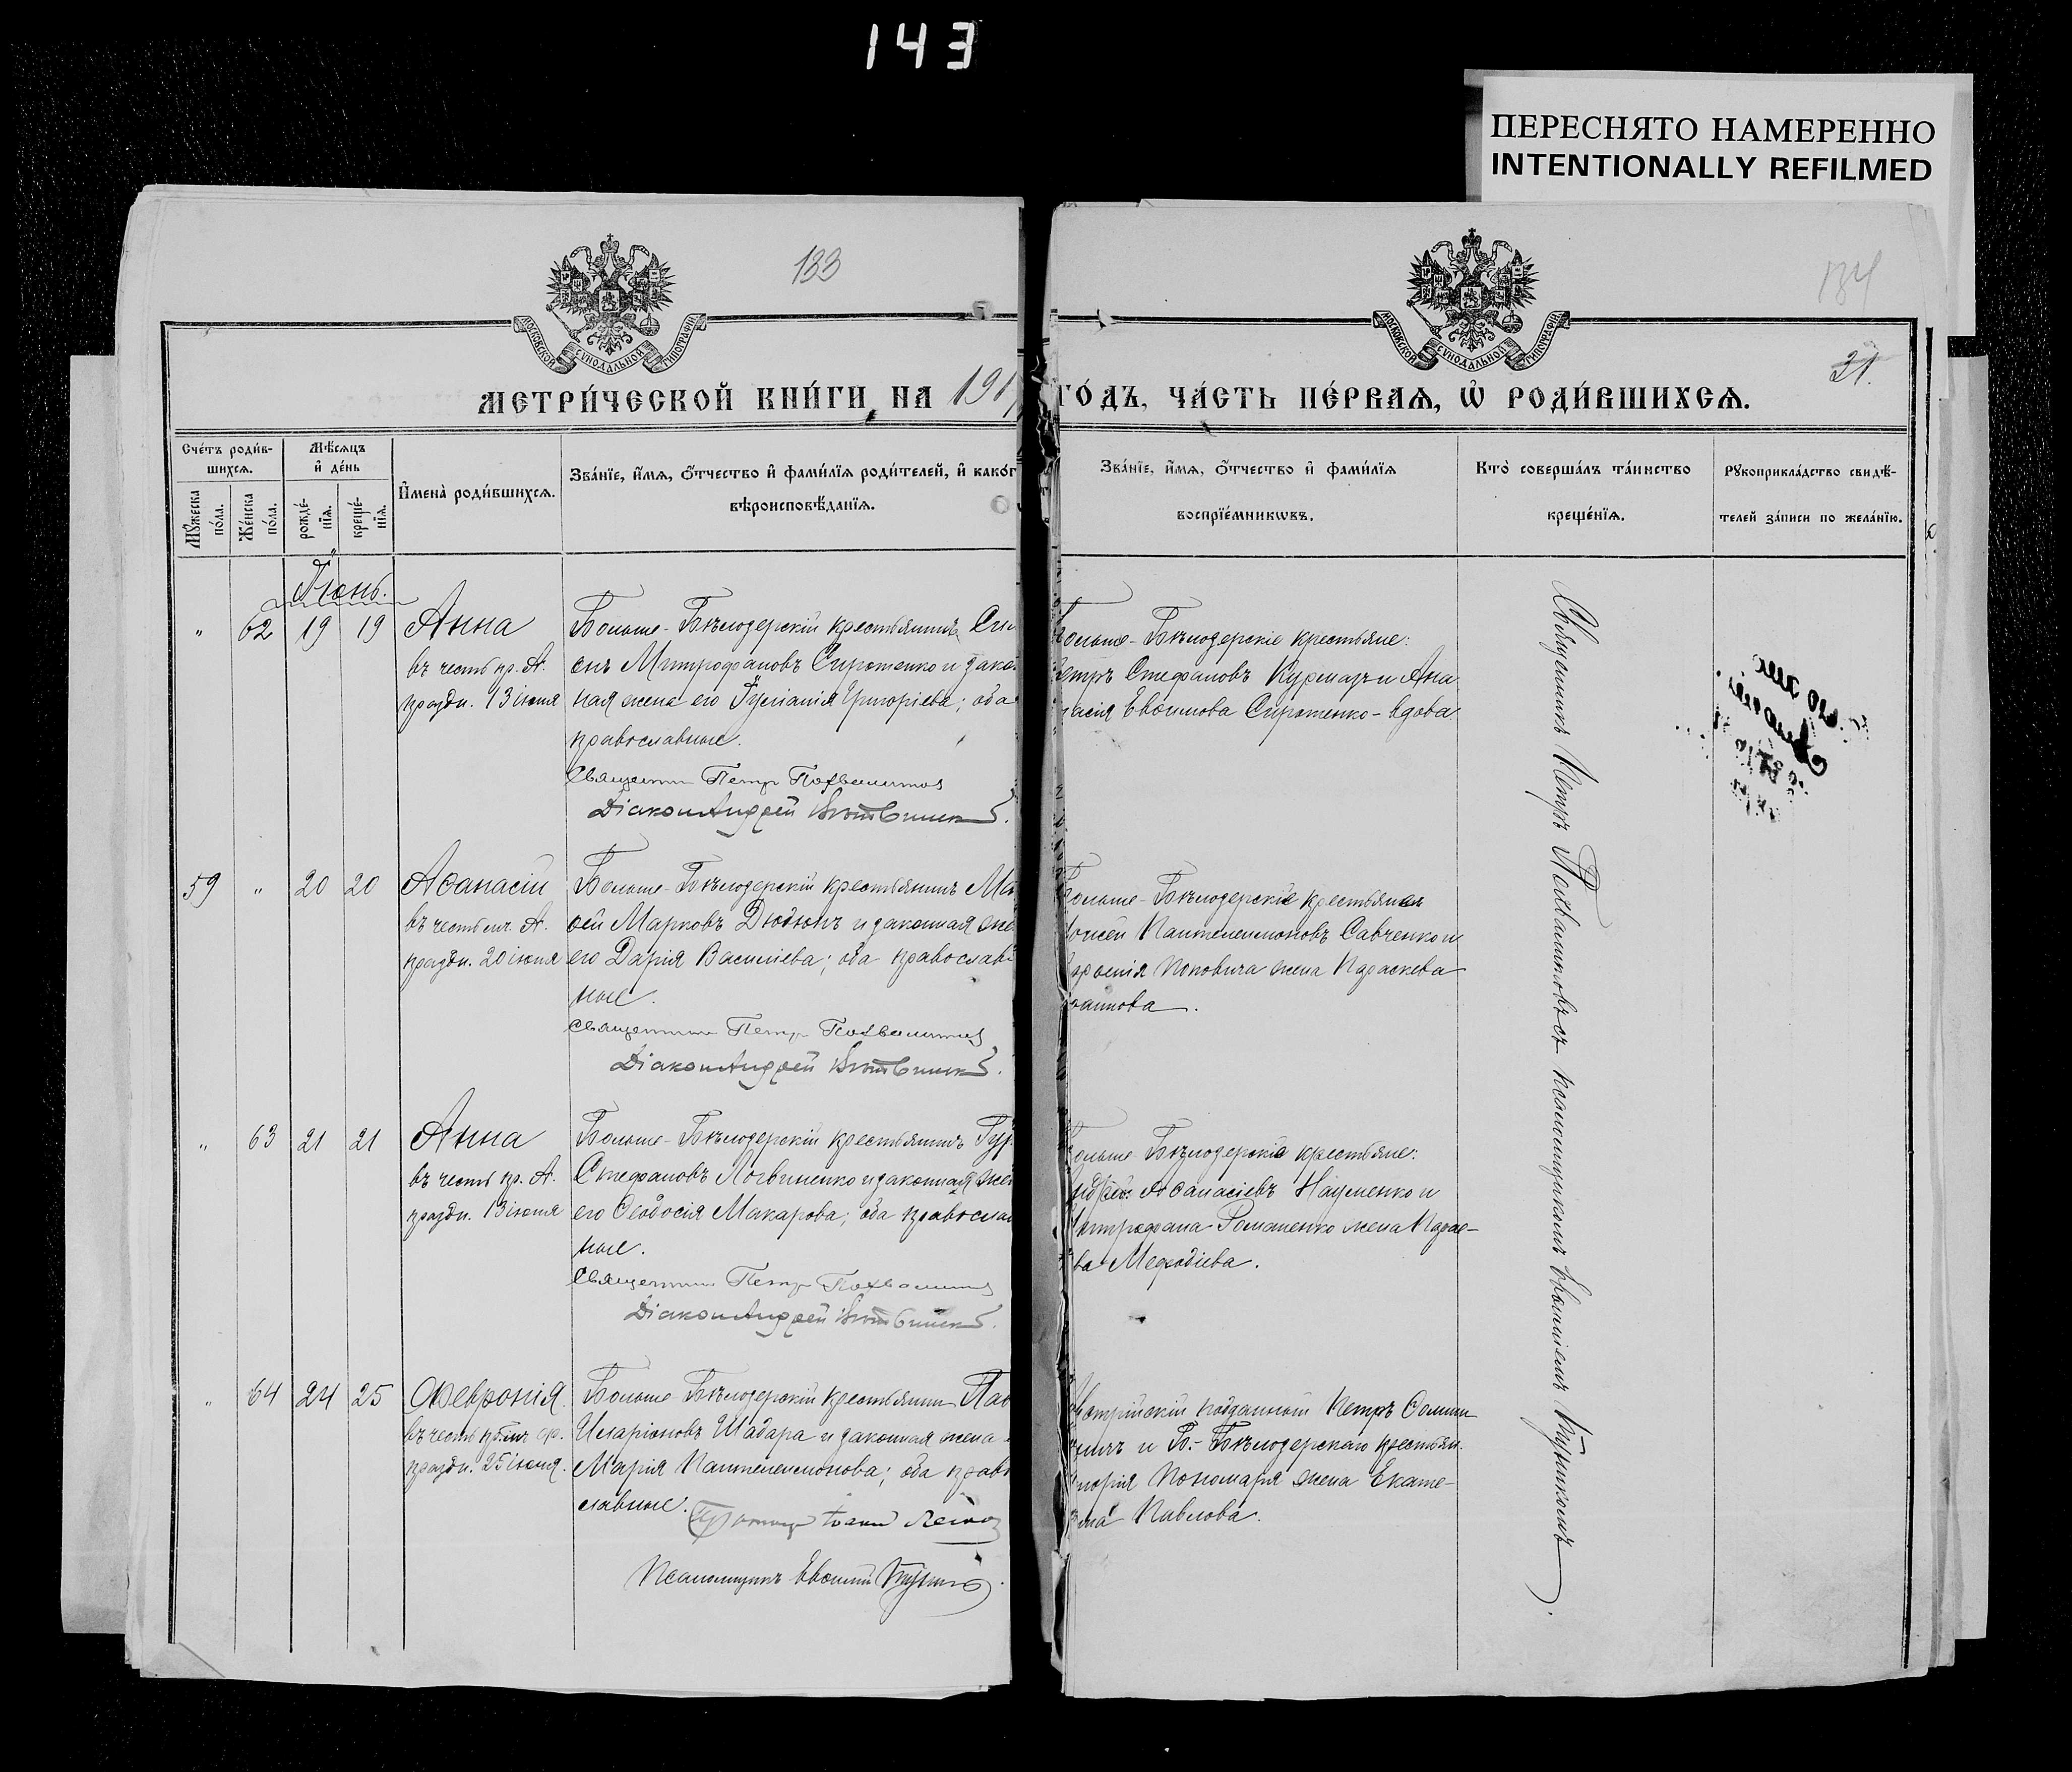 143
ПЕРЕСНЯТО НАМЕРЕННО
INTENTIONALLY REFILMED
133
134
МОСКОВСКОЙ СѴНОДАЛЬНОЙ ТИПОГРАФІИ
МОСКОВСКОЙ СѴНОДАЛЬНОЙ ТИПОГРАФІИ
31.
МЕТРИ́ЧЕСКОЙ КНИ́ГИ НА 191
ГО́ДЪ, ЧА́СТЬ ПЕ́РВАѦ, Ѡ҆ РОДИ́ВШИХСѦ.
Сче́тъ роди́в-
шихсѧ.
Мꙋ́жеска по́ла.
Же́нска по́ла.
Мѣ́сѧцъ
и҆ де́нь
рожде́-
нїѧ.
креще́-
нїѧ.
И҆мена̀ роди́вшихсѧ.
Зва́нїе, и҆́мѧ, ѻ҆́тчество и҆ фами́лїѧ роди́телей, и҆ како́г
вѣроисповѣ́данїѧ.
Зва́нїе, и҆́мѧ, ѻ҆́тчество и҆ фами́лїѧ
воспрїе́мникѡвъ.
Кто̀ соверша́лъ та́инство
креще́нїѧ.
Рꙋкоприкла́дство свидѣ́-
телей за́писи по жела́нїю.
Іюнь.
" 62 19 19 Анна
въ честь пр. А.
праздн. 13 іюня
Больше-Бѣлозерскій крестьянинъ Си
онъ Митрофановъ Сиротенко и закон
ная жена его Іуліанія Григоріева; оба
православные.
Священник Петр Похвалитов
Діакон Андрей
Больше-Бѣлозерскіе крестьяне:
етръ Стефановъ Курмазъ и Ана
тасія Евѳимова Сиротенко-вдова
59 " 20 20 Аѳанасій
въ честь А.
праздн. 20 іюня
Больше-Бѣлозерскій крестьянинъ Ма
ѳей Марковъ Дюдюнъ и законная же
его Дарія Васильева; оба православ
ные.
Священник Петр Похвалитов
Діакон Андрей
ольше-Бѣлозерскіе крестьяне
оисей Пантелеимоновъ Савченко и
Поповича жена Параскева
оаннова.
" 63 21 21 Анна
въ честь пр. А.
праздн. 13 іюня
Больше-Бѣлозерскій крестьянинъ Гур
Стефановъ Логвиненко и законная же
его Ѳеодосія Макарова; оба православ
ные.
Священник Петр Похвалитов
Діакон Андрей
ольше-Бѣлозерскіе крестьяне:
Аѳанасіевъ Науменко и
итрофана Романенко жена Парас-
ва Меѳодіева.
" 64 24 25 Февронія
въ честь ф.
праздн. 25 іюня.
Больше-Бѣлозерскій крестьянинъ Пав
Иларіоновъ Шадара и законная жена
Марія Пантелеимонова; оба право
славные.
Псаломщикъ Евѳимій
встрійскій подданный Петръ
и Б.-Бѣлозерскаго крестьян.
игорія Пономаря жена Екате-
ина Павлова.
Священникъ Петръ Похвалитовъ съ псаломщикомъ Евѳиміемъ